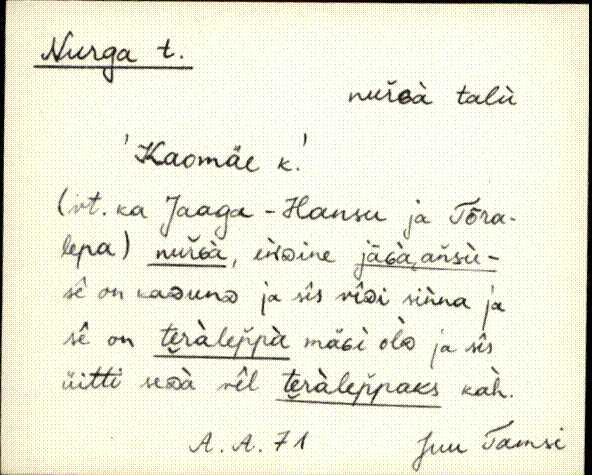 Nurga t.
nuřGà talù
'Kaomäe k.'
(vt. ka Jaaga-Hansu ja Tõra-
lepa) nuřGà, èǹDine jäGà‿añsù-
sê on kaDunD ja sîs vîDi siǹna ja
sê on te̮ràlep̆pà mäGì olD ja sîs
üitti seDà vêl te̮ràlep̆paks kàh.
A. A. 71 Juu Tamsi